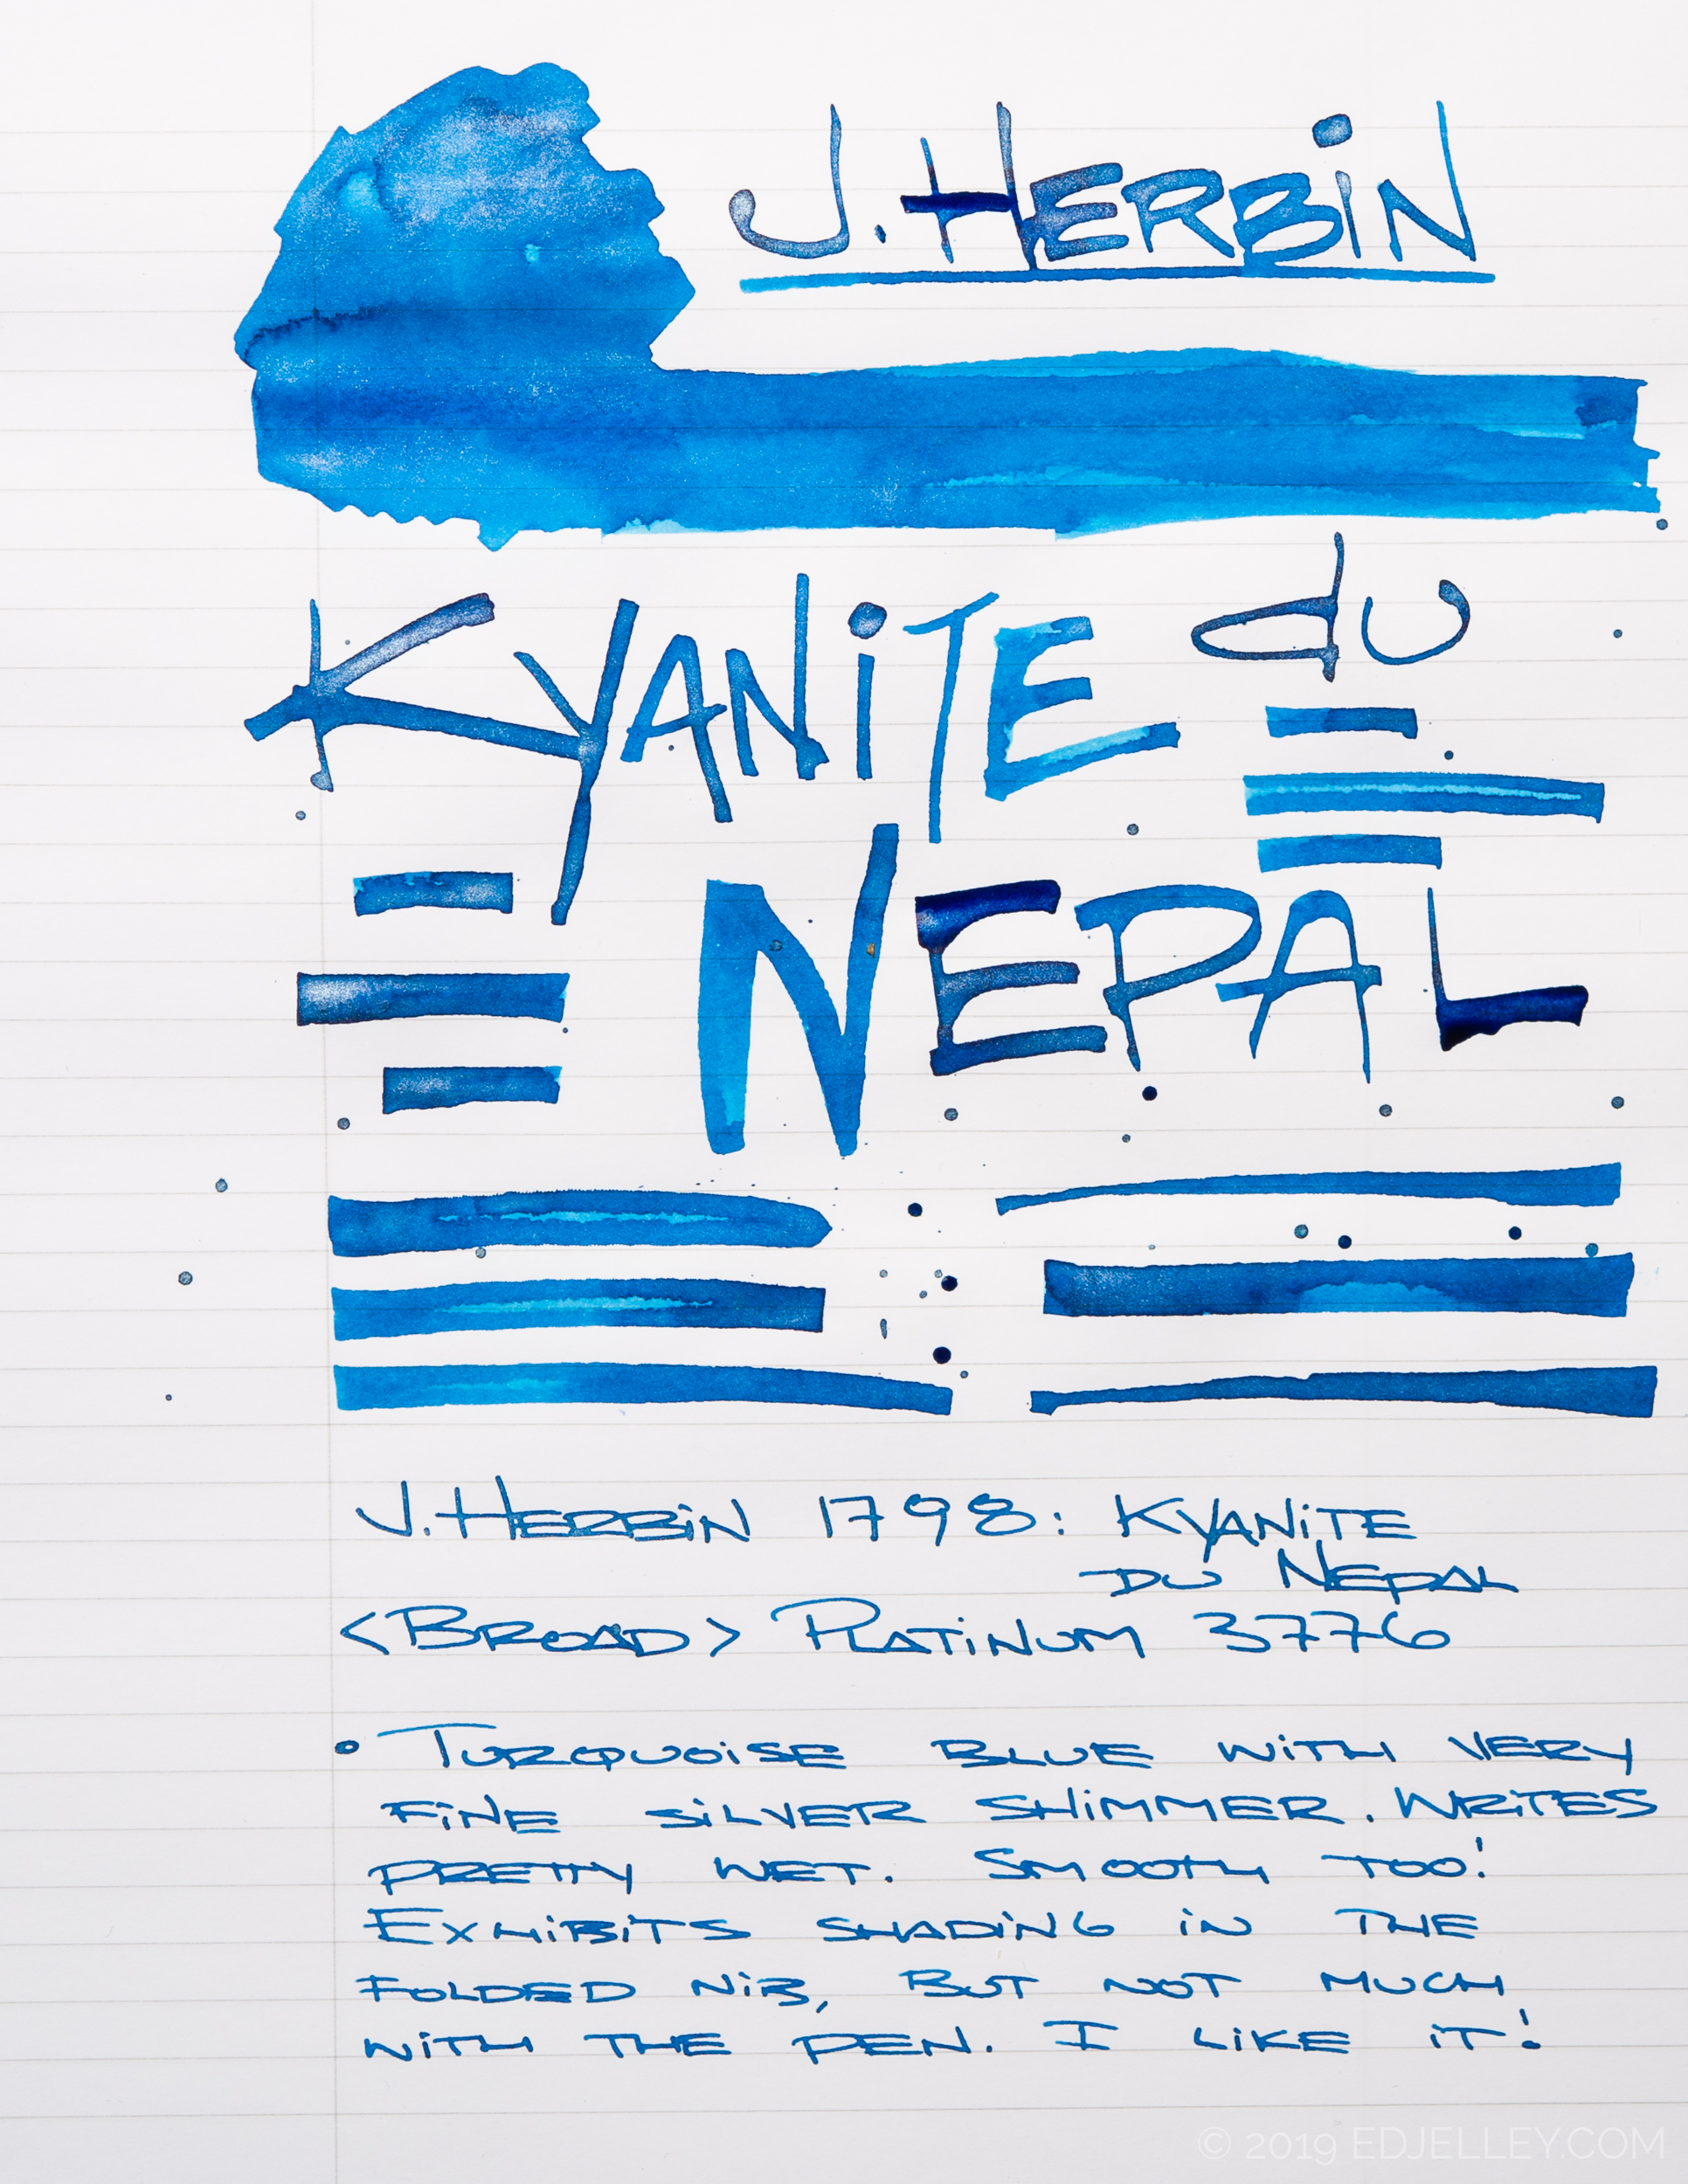 J. HERBiN
KYANiTE du
NEPAL
J. HERBiN 1798: KYANiTE
DU NEPAL
<BROAD> PLATiNUM 3776
• TURQUOiSE BLUE WiTH VERY
FiNE SiLVER SHiMMER. WRiTES
PRETTY WET. SMOOTH TOO!
EXHiBiTS SHADiNG iN THE
FOLDED NiB, BUT NOT MUCH
WiTH THE PEN. I LiKE iT!
© 2019 EDJELLEY.COM